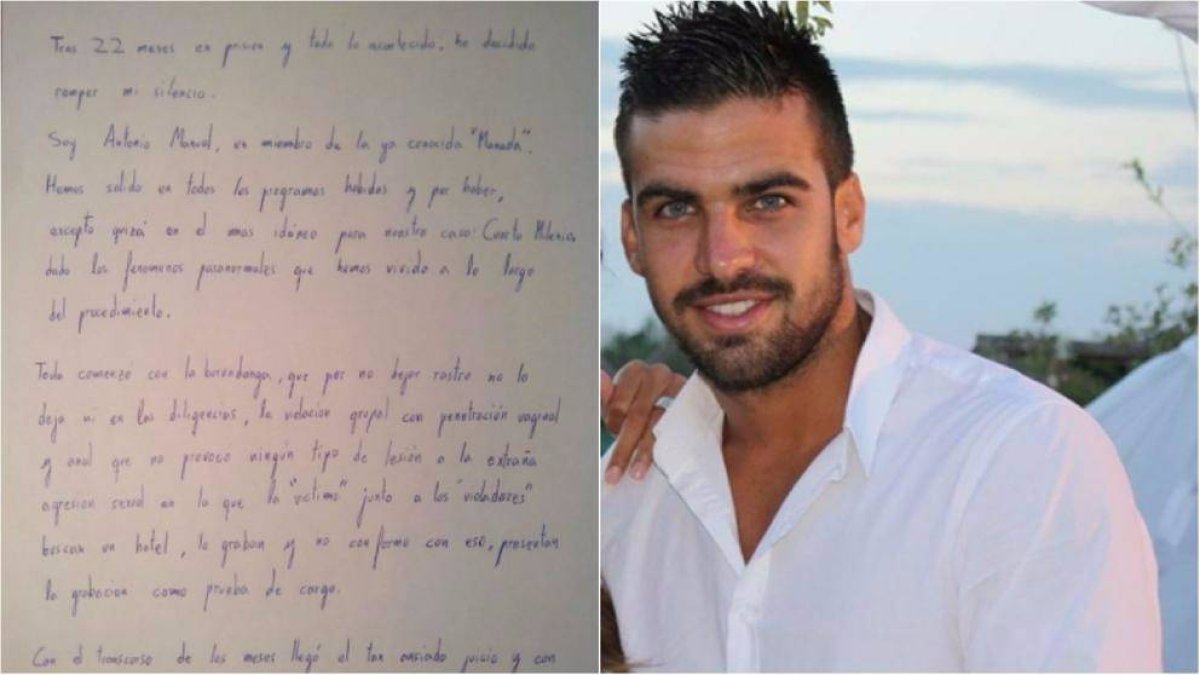 Tras 22 meses en prision y todo lo acontecido, he decidido
romper mi silencio.
Soy Antonio Manuel, un miembro de la ya conocida "Manada".
Hemos salido en todos los programas habidos y por haber,
excepto quizá en el mas idóneo para nuestro caso: Cuarto Milenio,
dado los fenomenos paranormales que hemos vivido a lo largo
del procedimiento.
Todo comenzó con la burundanga, que por no dejar rastro no lo
deja ni en las diligencias, la violación grupal con penetración vaginal
y anal que no provocó ningún tipo de lesión o la extraña
agresion sexual en la que la "victima" junto a los "violadores"
buscan un hotel, la graban y no conforme con eso, presentan
la grabacion como prueba de cargo.
Con el transcurso de los meses llegó el tan ansiado juicio y con